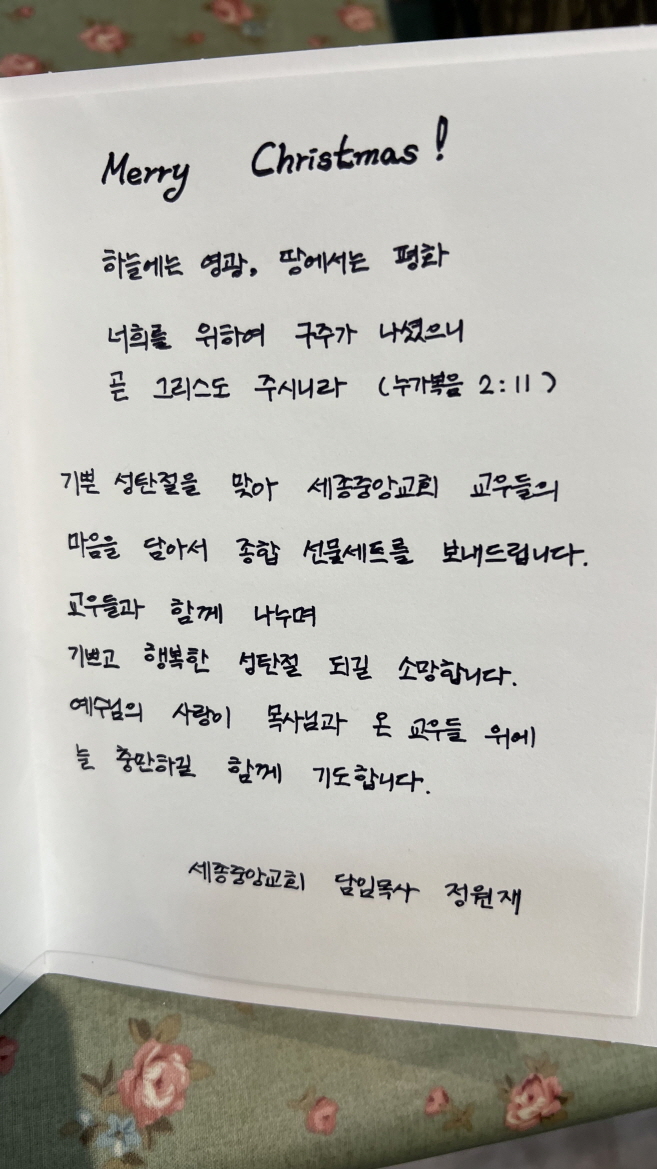 Merry Christmas!
하늘에는 영광, 땅에서는 평화
너희를 위하여 구주가 나셨으니
곧 그리스도 주시니라 (누가복음 2:11)
기쁜 성탄절을 맞아 세종중앙교회 교우들의
마음을 담아서 종합 선물세트를 보내드립니다.
교우들과 함께 나누며
기쁘고 행복한 성탄절 되길 소망합니다.
예수님의 사랑이 목사님과 온 교우들 위에
늘 충만하길 함께 기도합니다.
세종중앙교회 담임목사 정원재